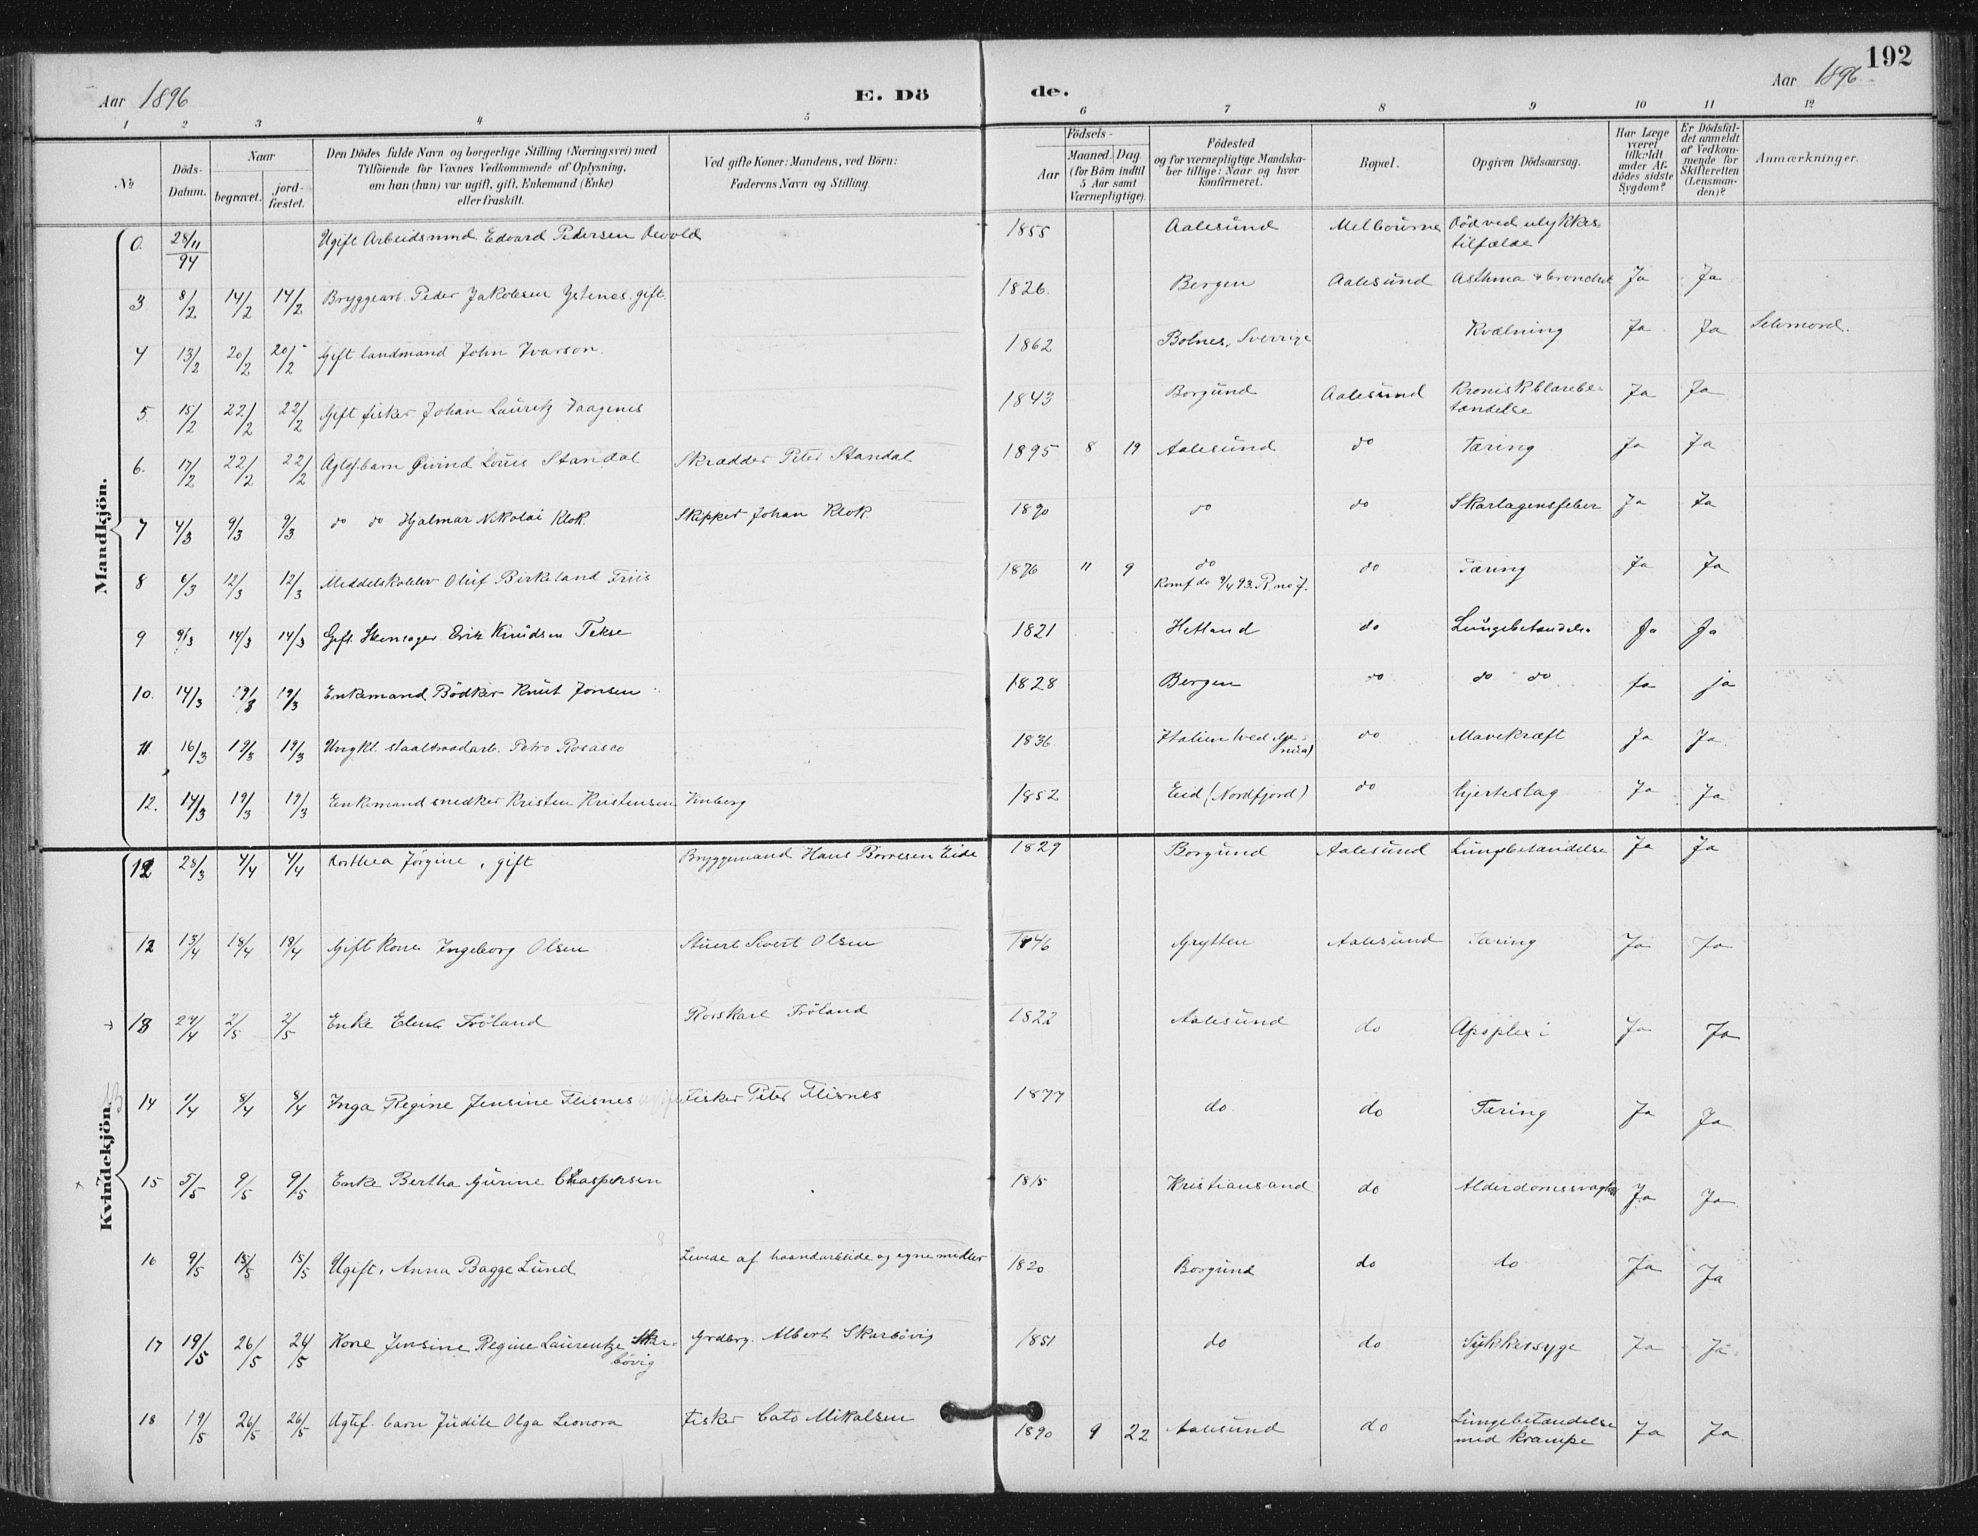 192
Aar 1896 E. Dö de. Aar 1896
1 2 3 4 5 6 7 8 9 10 11 12
№ Döds-Datum. Naar begravet. jord-fæstet. Den Dödes fulde Navn og borgerlige Stilling (Næringsvei) med Tilföiende for Voxnes Vedkommende af Oplysning, om han (hun) var ugift, gift, Enkemand (Enke) eller fraskilt. Ved gifte Koner: Mandens, ved Börn: Faderens Navn og Stilling. Aar Födsels- Maaned. Dag (for Börn indtil 5 Aar samt Værnepligtige). Födested og for værnepligtige Mandskaber tillige: Naar og hvor konfirmeret. Bopæl. Opgiven Dödsaarsag. Har Læge været tilkaldt under Afdödes sidste Sygdom? Er Dödsfaldet anmeldt af Vedkommende for Skifteretten (Lensmanden)? Anmærkninger.
Mandkjön.
0. 28/11 94 Ugift Arbeidsmand Edvard Pedersen Devold 1855 Aalesund Melbourne Död ved ulykkestilfælde
3 8/2 14/2 14/2 Bryggearb. Peder Jakobsen Ystenes, gift. 1826. Bergen Aalesund Asthma & bronchit Ja Ja
4 13/2 20/2 20/2 Gift landmand John Ivarson. 1862 Bolnes, Sverrige Kvælning Ja Ja Selvmord.
5 15/2 22/2 22/2 Gift fisker Johan Lauritz Vaagenes 1843 Borgund Aalesund Kronisk blærebetændelse Ja Ja
6. 17/2 22/2 22/2 Ægtef. barn Øivind Louis Standal Skrædder Peter Standal 1895 8 19 Aalesund do Tæring Ja Ja
7 4/3 9/3 9/3 do do Hjalmar Nikolai Klok. Skipper Johan Klok 1890 do do Skarlagensfeber Ja Ja
8 6/3 12/3 12/3 Middelskolelev Oluf Birkeland Friis 1876 11 9 do Konf. do 9/4 93. R. no 7. do Tæring Ja Ja
9 9/3 14/3 14/3 Gift Stenhuger Erik Knudsen Tekse 1821 Hetland do Lungebetændelse Ja Ja
10. 14/3 19/3 19/3 Enkemand Bödker Knut Jonsen 1828 Bergen do do do Ja ja
11. 16/3 19/3 19/3 Ungkl. staaltraadarb. Petro Rosasco 1836 Italien (ved Genua) do Mavekræft Ja Ja
12. 14/3 19/3 19/3 Enkemand snedker Kristen Kristensen Vinberg 1852 Eid (Nordfjord) do hjerteslag Ja Ja
Kvindekjön.
12 28/3 4/4 4/4 Dorthea Jörgine, gift Bryggemand Hans Borresen Eide 1829 Borgund Aalesund Lungebetændelse Ja Ja
12 13/4 18/4 18/4 Gift kone Ingeborg Olsen Stuert Sivert Olsen 1846 Grytten Aalesund Tæring Ja Ja
13 27/4 2/5 2/5 Enke Elen Fröland Rorskarl Fröland 1822 Aalesund do Apoplexi Ja Ja
14 1/4 8/4 8/4 Inga Regine Jensine Flisnes Fisker Peter Flisnes 1877 do do Tæring Ja Ja
15 5/5 9/5 9/5 Enke Bertha Gurine Chaspersen 1815 Kristiansand do Alderdomssvaghed Ja Ja
16 9/5 15/5 15/5 Ugift, Anna Bagge Lund Levede af haandarbeide og egne midler 1820 Borgund do do Ja Ja
17 19/5 26/5 26/5 Kone Jensine Regine Laurentze Skarbövig Gordbrg. Albert Skarbövig 1851 do do Sukkersyge Ja Ja
18 19/5 26/5 26/5 Ægtef. barn Judite Olga Leonora Fisker Cato Mikalsen 1890 9 22 Aalesund do Lungebetændelse med krampe Ja Ja